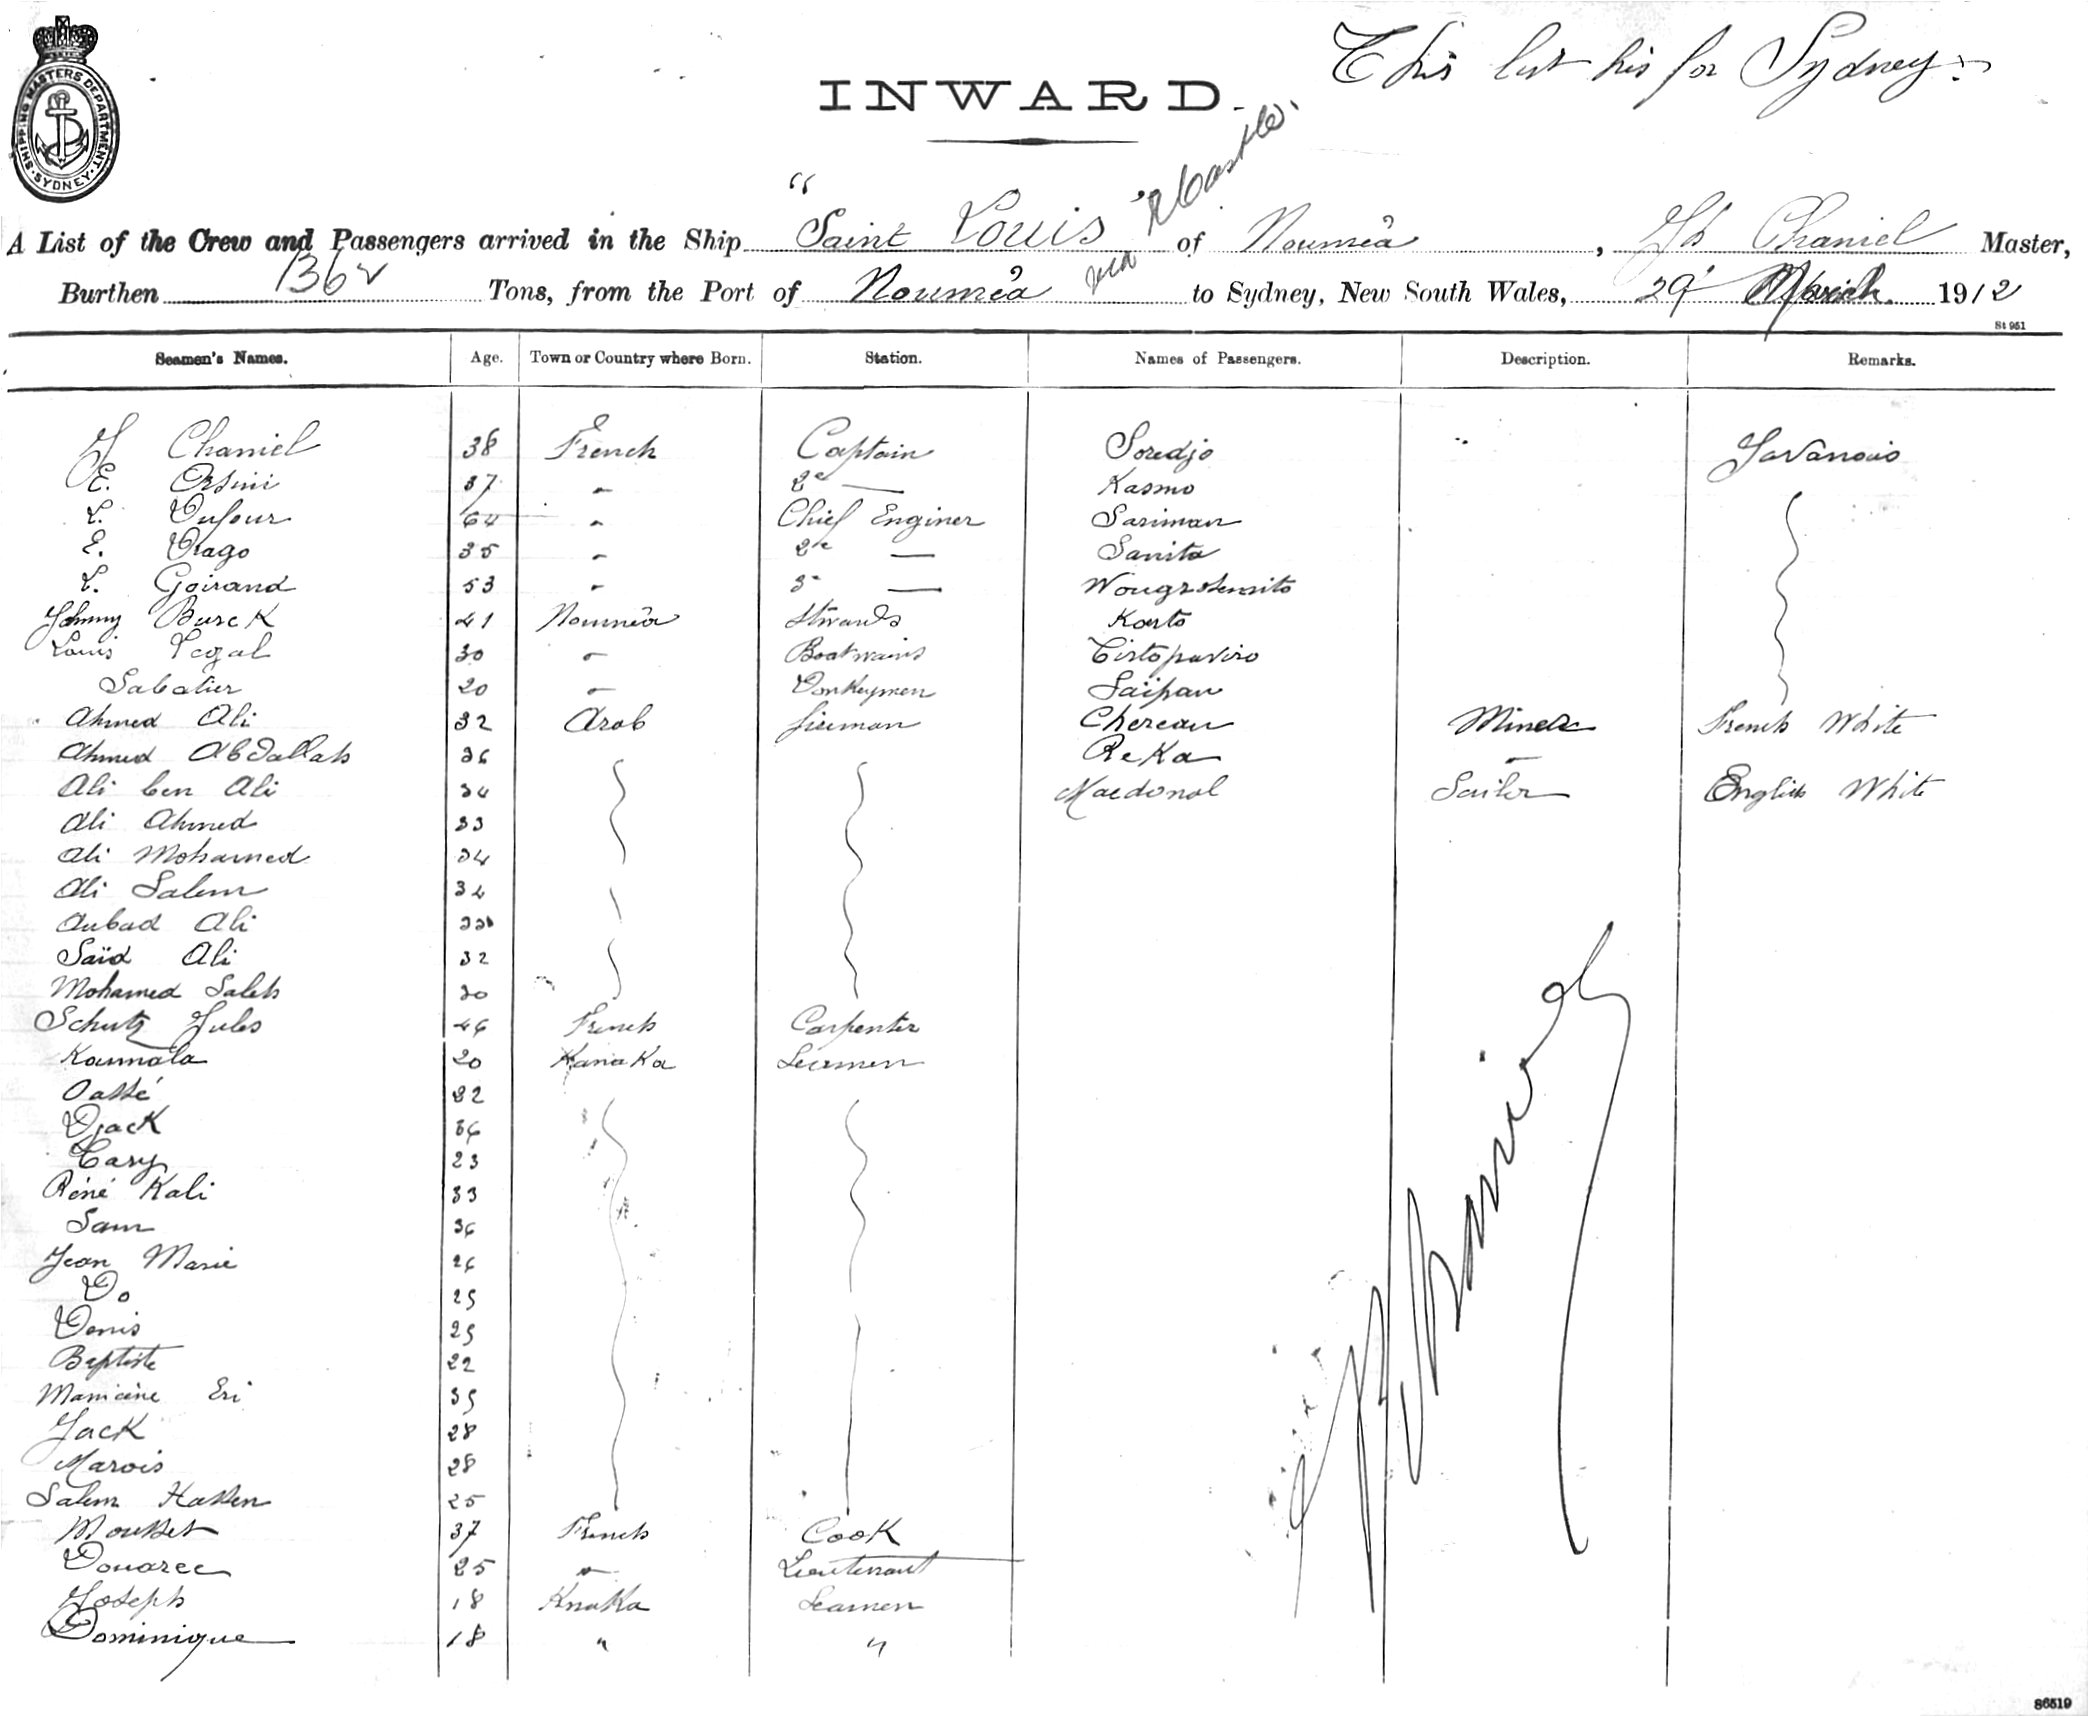 This list his for Sydney
SHIPPING MASTERS DEPARTMENT
SYDNEY
INWARD
A List of the Crew and Passengers arrived in the Ship "Saint Louis" of Nouméa, Jh Chaniel Master,
Burthen 1362 Tons, from the Port of Nouméa via NCastle. to Sydney, New South Wales, 29 March 1912
St 951
Seamen's Names. Age. Town or Country where Born. Station. Names of Passengers. Description. Remarks.
J Chaniel 38 French Captain Soredjo Javanais
E. Orsini 37 " 2e — Kasmo
L. Dufour 64 " Chief Enginer Sariman
E. Drago 35 " 2e — Sanita
L. Goirand 53 " 3e —
Johnny Burck 41 Nouméa Stwards Karto
Louis Legal 30 " Boatwains Tirtopaviro
Sabatier 20 " Donkeymen Saïpan
Ahmed Ali 32 Arab fireman Chereau Miner French White
Ahmed Abdallah 36 ReKa "
Ali ben Ali 34 Macdonal Sailor English White
Ali Ahmed 33
Ali Mohamed 34
Ali Salem 34
Aubad Ali
Saïd Ali 32
Mohamed Saleh 30
Schutz Jules 46 French Carpenter
Kaumala 20 KanaKa Seamen
Passé 32
Djack 36
Tary 23
Réné Kali 33
Sam 36
Jean Marie 26
Do 25
Denis 25
Baptiste 22
Manicène Eri 35
Jack 28
Marois 28
Salem Hassen 25
Mousset 37 French Cook
Douarec 25 " Lieutenant
Joseph 18 KnaKa Seamen
Dominique 18 " "
J Chaniel
86519